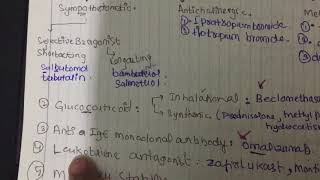 Sympathetomatic
Anticholinergic
Me
① Ipratropiumbromide
② tiotropium bromide
Selective B2agonist
Shortacting
Longacting
Salbutomol
bambuterol
Salmetrol
② Glucocorticoid :
Inhalational : Beclomethas
Synthetic (Prednisolone, methyl p
hydrocortis
③ Anti a IgE monoclonal antibody: Omalizumab.
④ Leukotriene antagonist : Zafirlykast, Mont
⑤